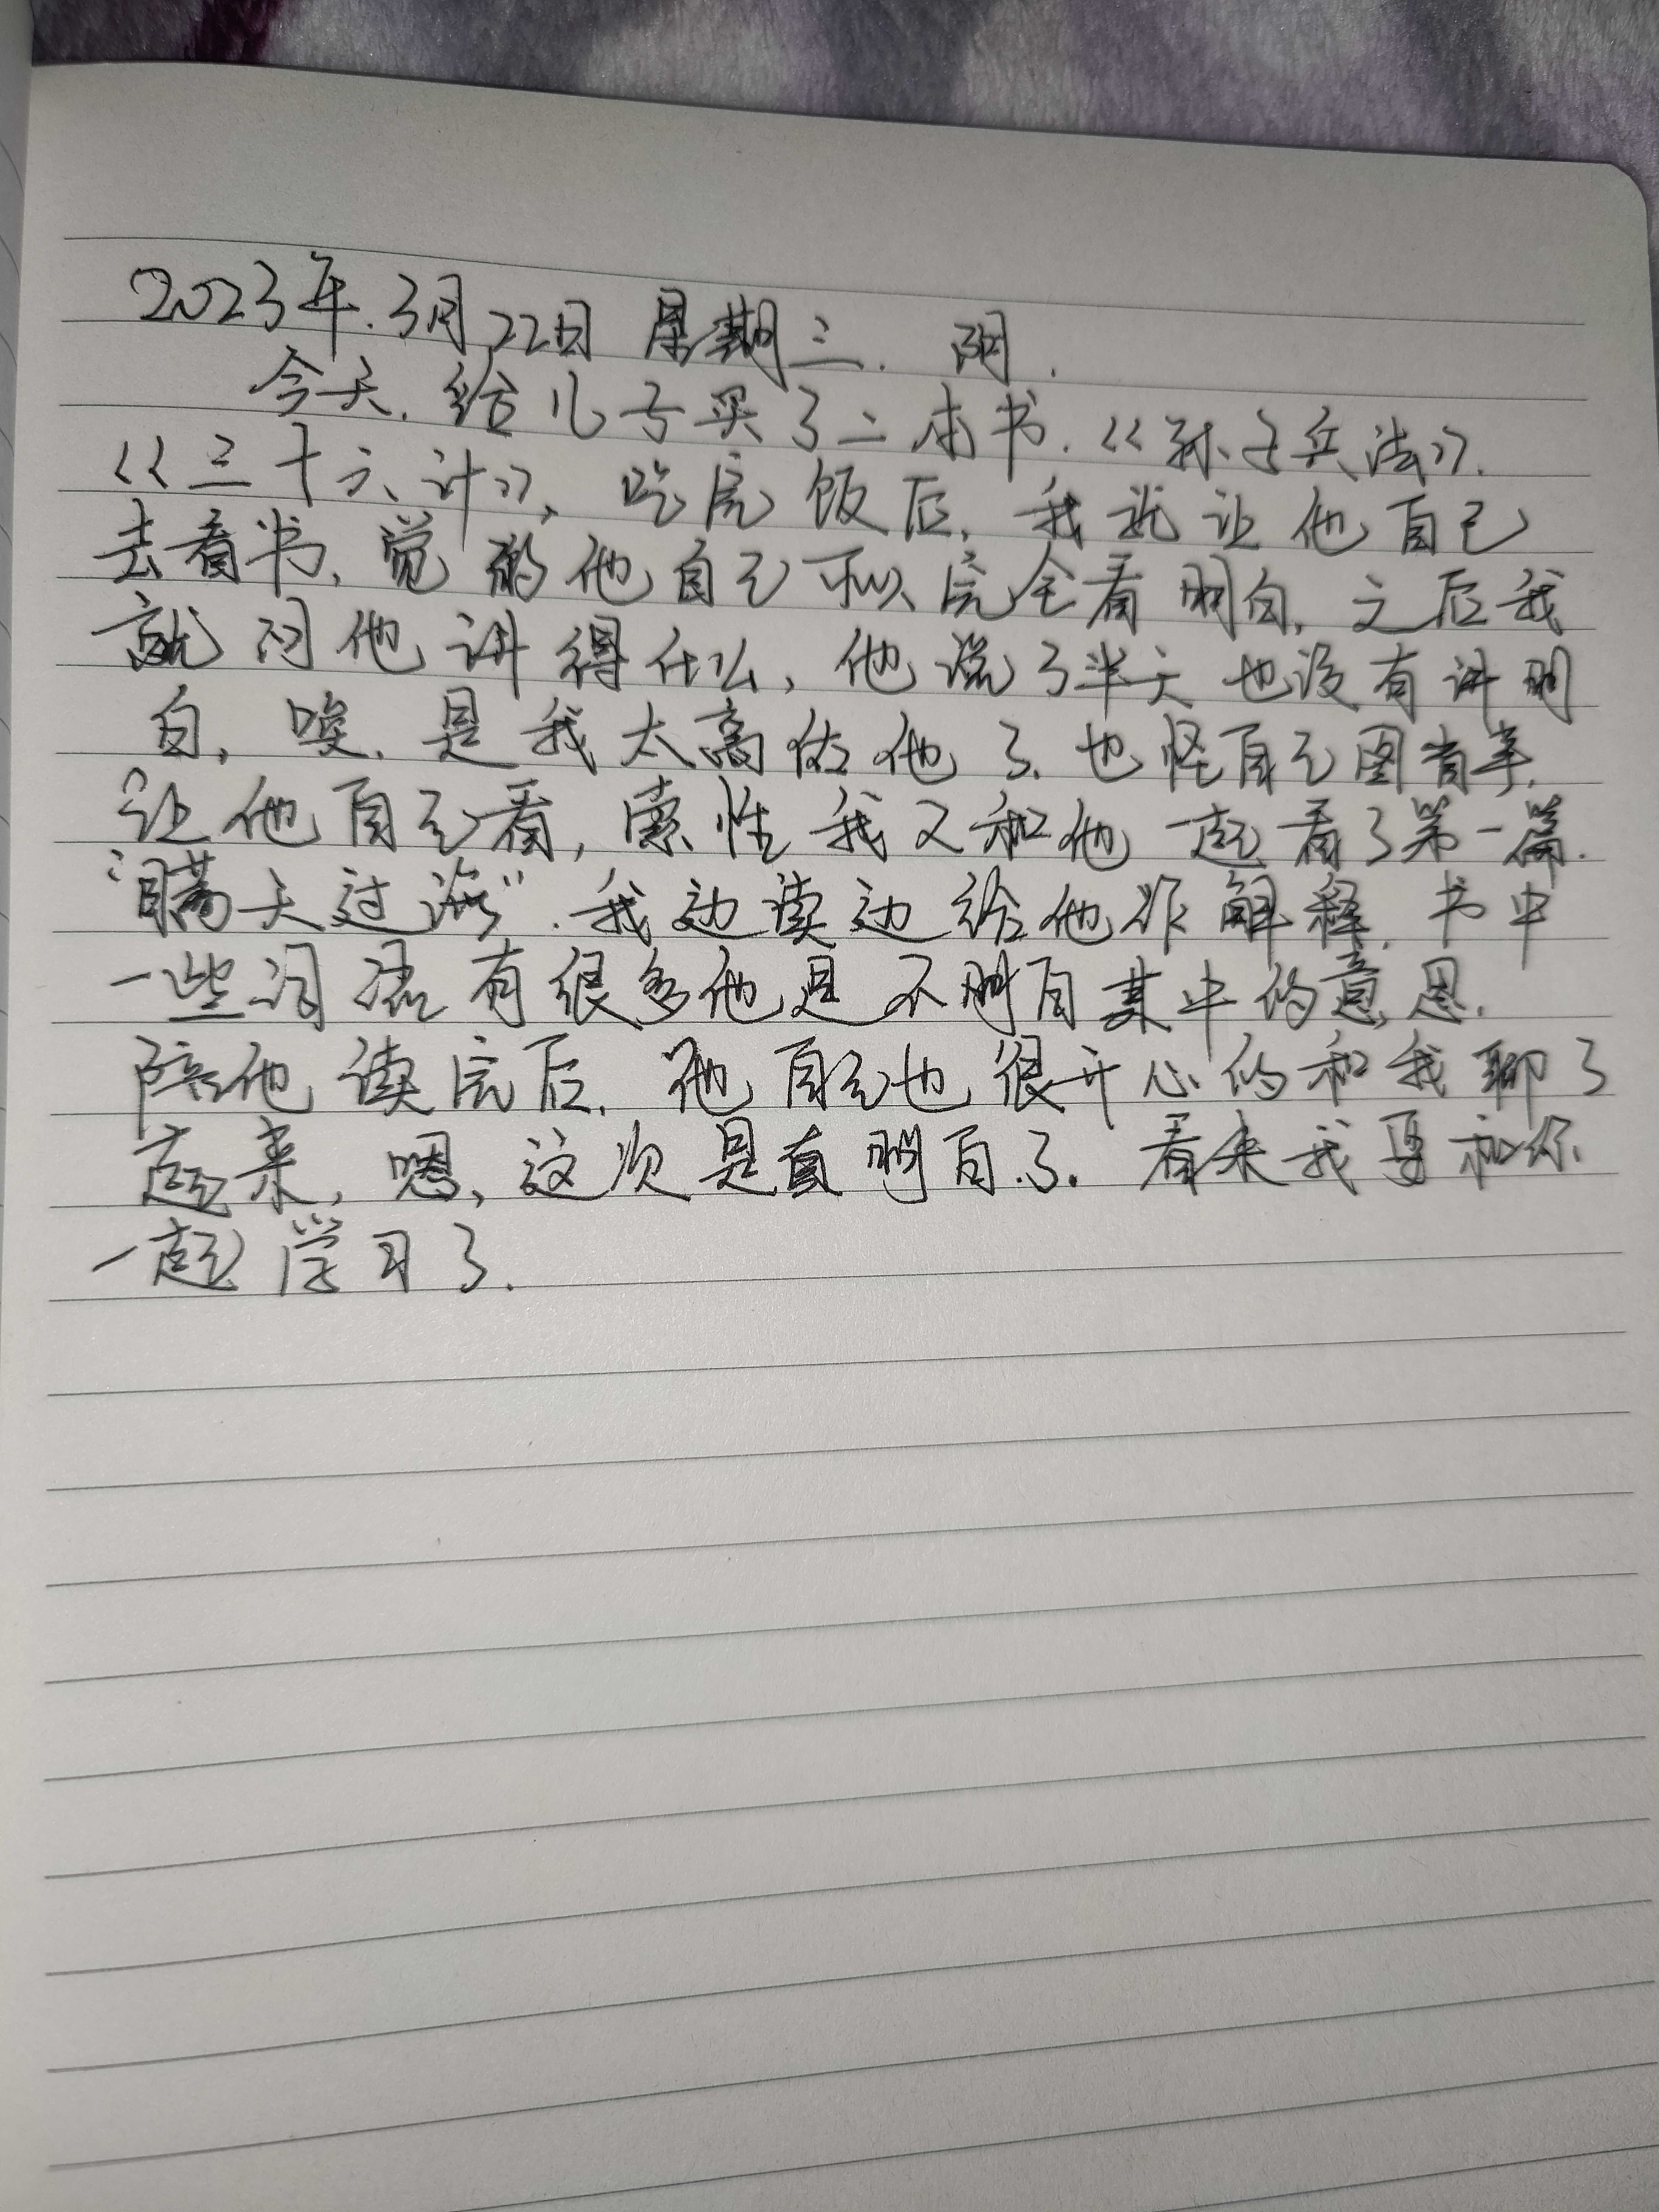 2023年.3月22日 星期三. 阴.
今天.给儿子买了二本书.《孙子兵法》.
《三十六计》,吃完饭后,我就让他自己
去看书,觉的他自己可以完全看明白,之后我
就问他讲得什么,他说了半天也没有讲明
白,唉.是我太高估他了.也怪自己图省事.
让他自己看,索性我又和他一起看了第一篇.
“瞒天过海”.我边读边给他作解释.书中
一些词语有很多他是不明白其中的意思.
陪他读完后.他自己也很开心的和我聊了
起来,嗯,这次是真明白了.看来我要和你
一起学习了.